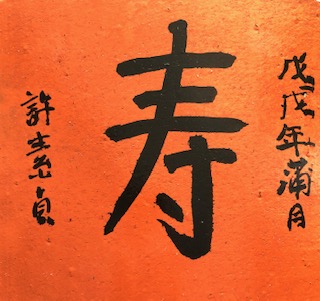 戊戌年蒲月
寿
許素貞